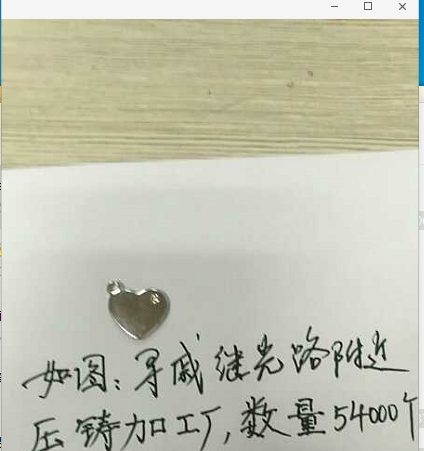 如图：寻戚继光路附近
压铸加工厂，数量54000个